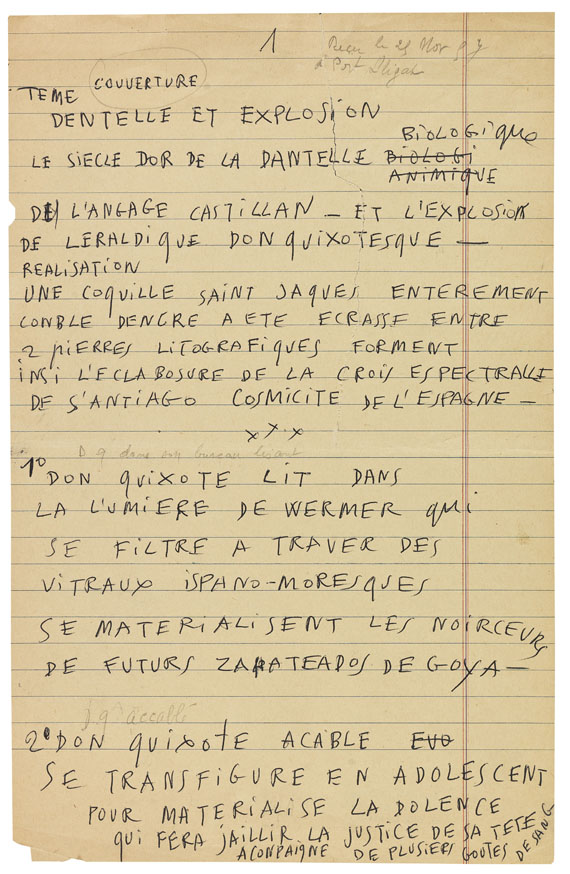 1
Reçu le 25 Nov 57
à Port Lligat
COUVERTURE
TEME
DENTELLE ET EXPLOSION
BIOLOGIQUE
LE SIECLE DOR DE LA DANTELLE BIOLOGI
ANIMIQUE
DU L'ANGAGE CASTILLAN — ET L'EXPLOSION
DE LERALDIQUE DON QUIXOTESQUE —
REALISATION
UNE COQUILLE SAINT JAQUES ENTEREMENT
CONBLE DENCRE A ETE ECRASSE ENTRE
2 PIERRES LITOGRAFIQUES FORMENT
INSI L'ECLABOSURE DE LA CROIS ESPECTRALLE
DE S'ANTIAGO COSMICITE DE L'ESPAGNE —
x x x
D Q dans son bureau lisant
1º DON QUIXOTE LIT DANS
LA L'UMIERE DE WERMER QUI
SE FILTRE A TRAVER DES
VITRAUX ISPANO-MORESQUES
SE MATERIALISENT LES NOIRCEURS
DE FUTURS ZAPATEADOS DE GOYA —
D Q accablé
2º DON QUIXOTE ACABLE EVO
SE TRANSFIGURE EN ADOLESCENT
POUR MATERIALISE LA DOLENCE
QUI FERA JAILLIR LA JUSTICE DE SA TETE
ACONPAIGNE DE PLUSIERS GOUTES DE SANG